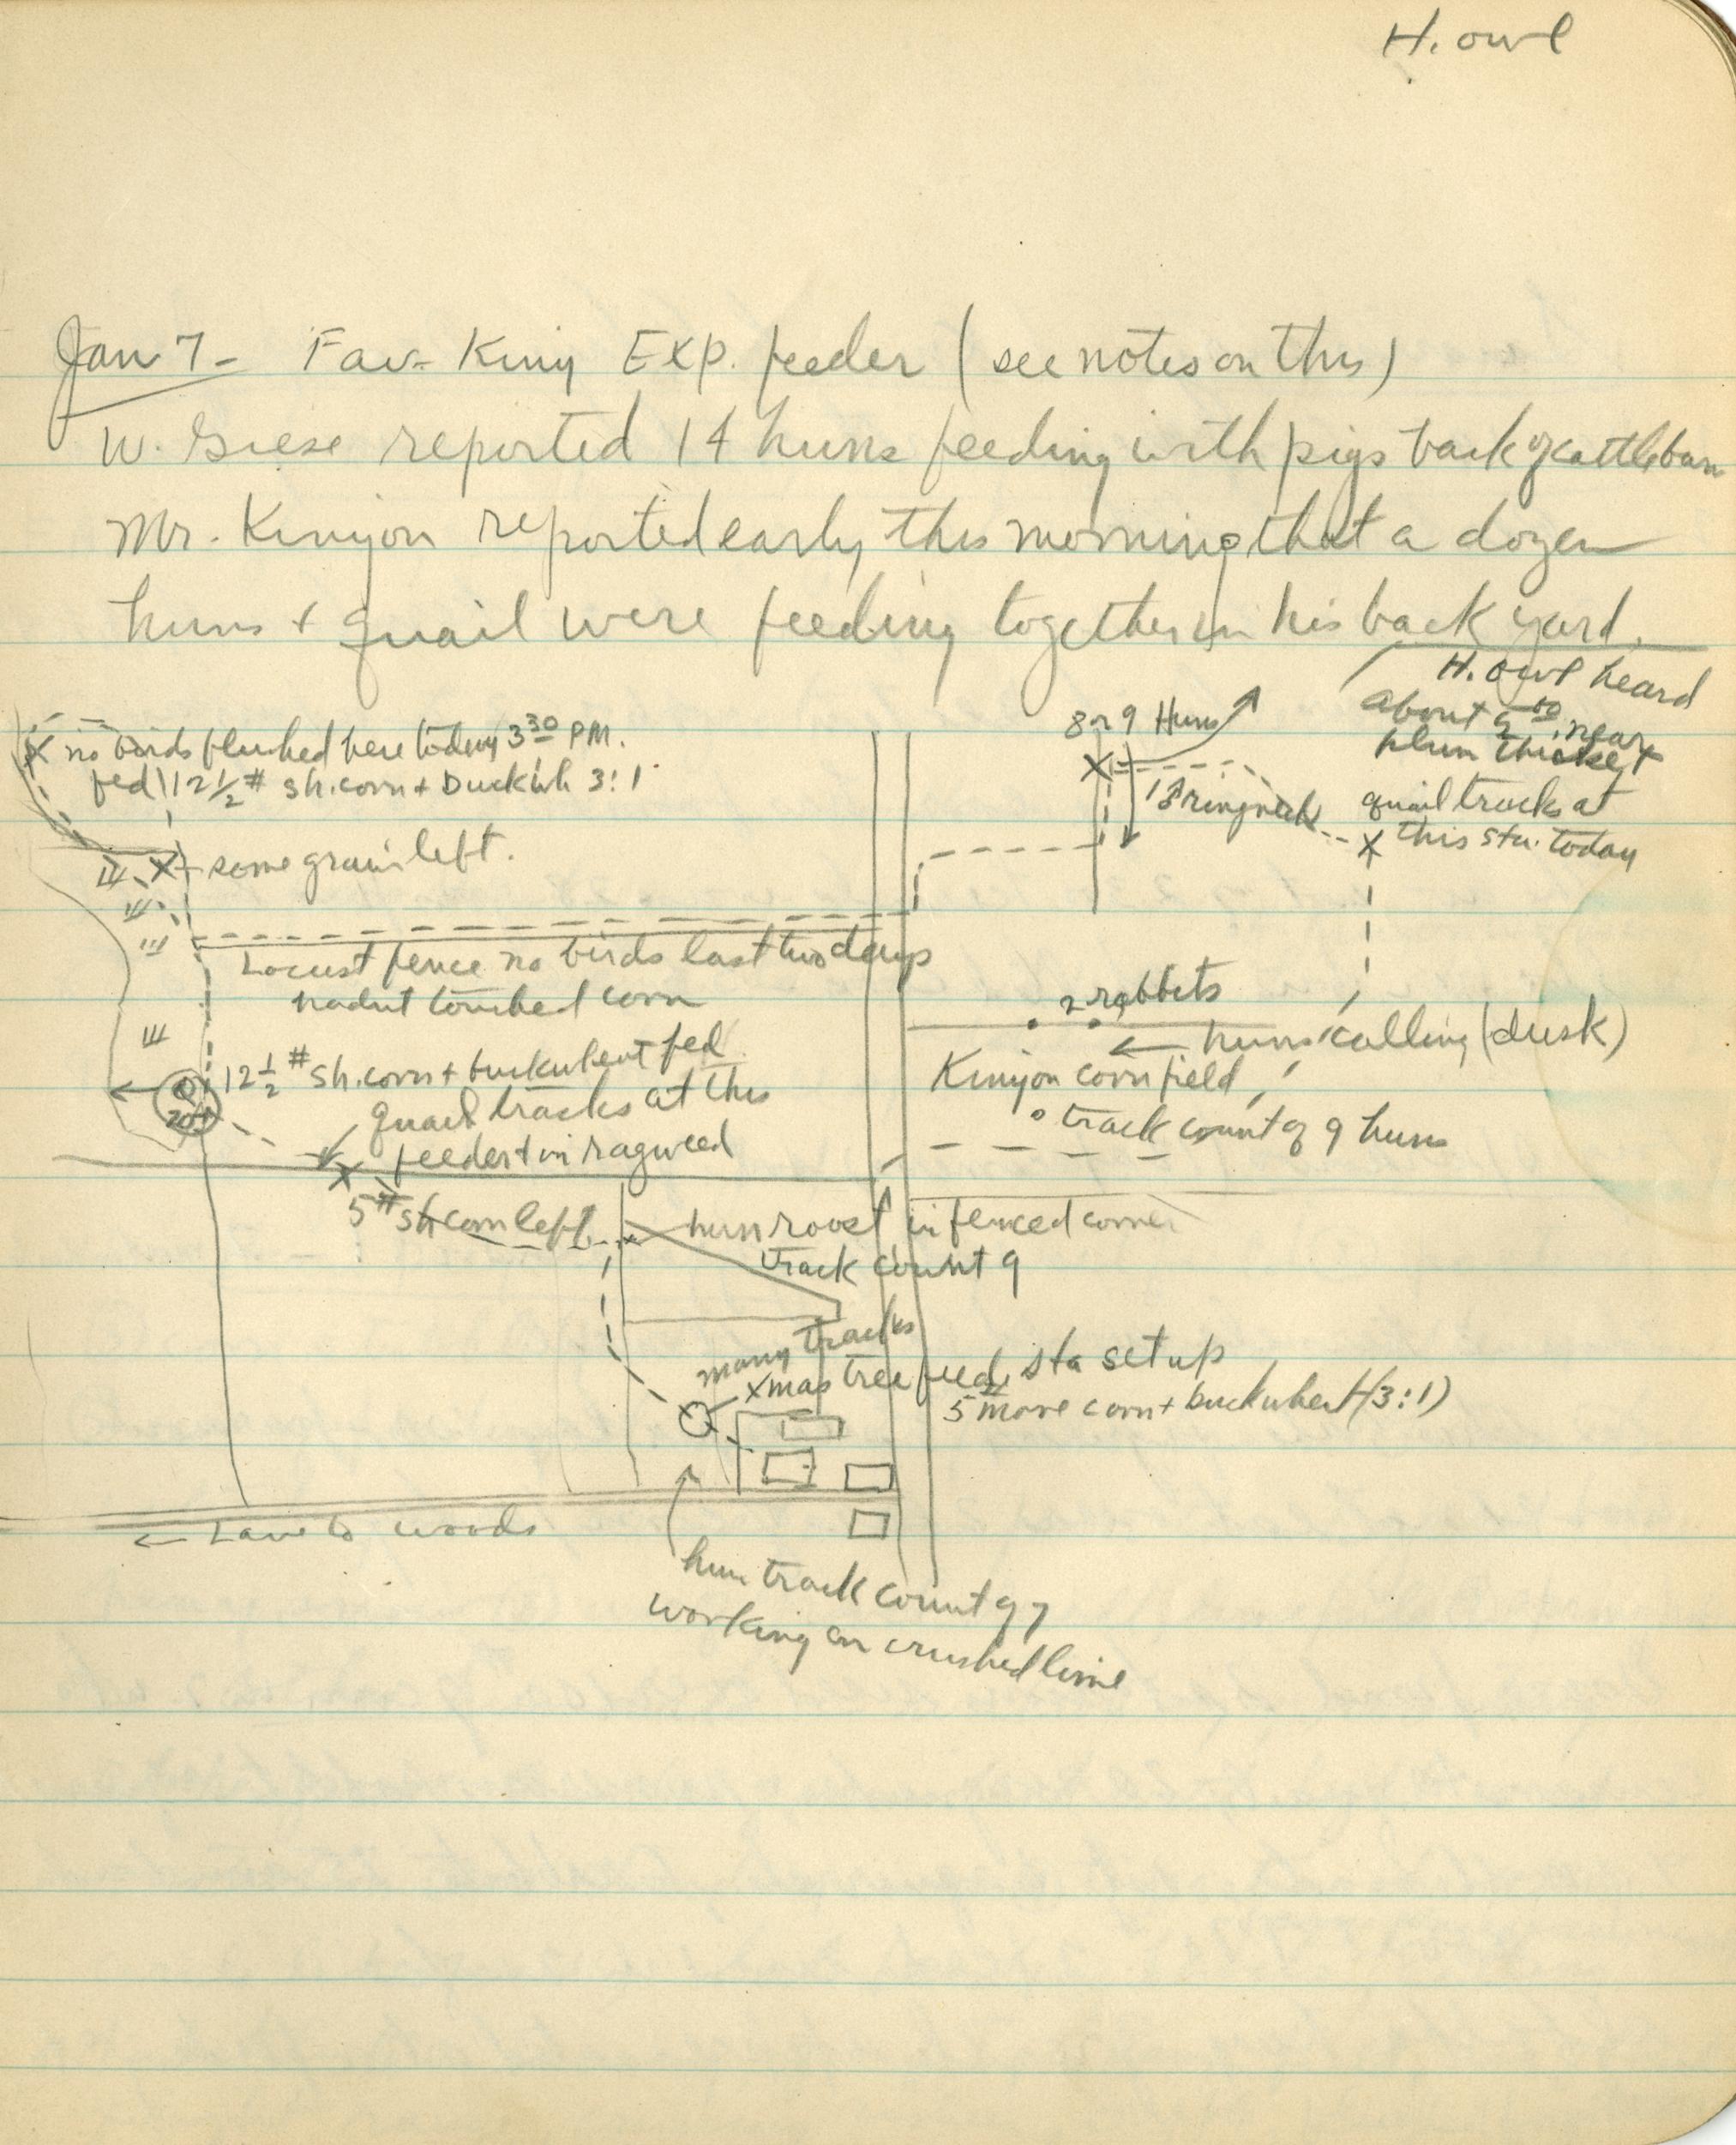 H. owl
Jan 7 - Fav- Kiny Exp. feeder (see notes on this)
W. Giese reported 14 huns feeding with pigs back of cattle barn
Mr. Kinyon reported early this morning that a dozen
huns + quail were feeding together in his back yard.
H. owl heard
about 5 00 near
plum thicket
8 or 9 Huns
1 ♂ ringneck
quail tracks at
this sta. today
no birds flushed here today 3 30 PM.
fed 12 1/2 # sh. corn + buckwh 3:1
some grain left.
Locust fence no birds last two days
hadnt touched corn
2 rabbits
huns calling (dusk)
Kinyon corn field
track count of 9 huns
12 1/2 # sh. corn + buckwheat fed
quail tracks at this
feeder + in ragweed
5 # sh corn left
hun roost in fenced corner
track count 9
many tracks
xmas tree feed. sta set up
5 # more corn + buckwheat (3:1)
← Lane to woods
hun track count of 7
working on crushed lime